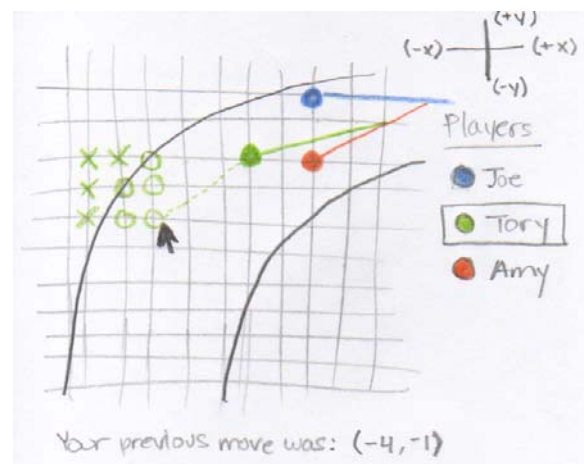 (+y)
(-x) (+x)
(-y)
Players
Joe
Tory
Amy
Your previous move was: (-4,-1)